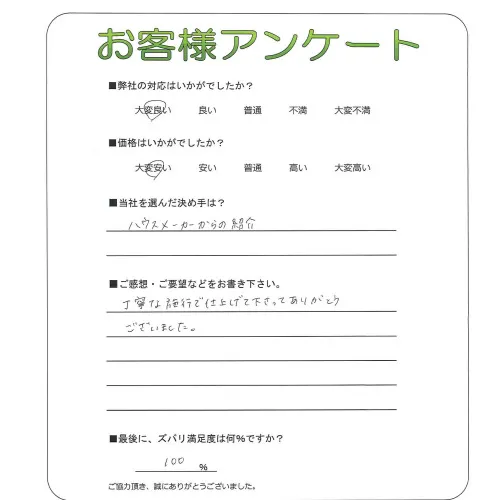 お客様アンケート
■弊社の対応はいかがでしたか？
大変良い 良い 普通 不満 大変不満
■価格はいかがでしたか？
大変安い 安い 普通 高い 大変高い
■当社を選んだ決め手は？
ハウスメーカーからの紹介
■ご感想・ご要望などをお書き下さい。
丁寧な施行で仕上げて下さってありがとう
ございました。
■最後に、ズバリ満足度は何%ですか？
100 %
ご協力頂き、誠にありがとうございました。